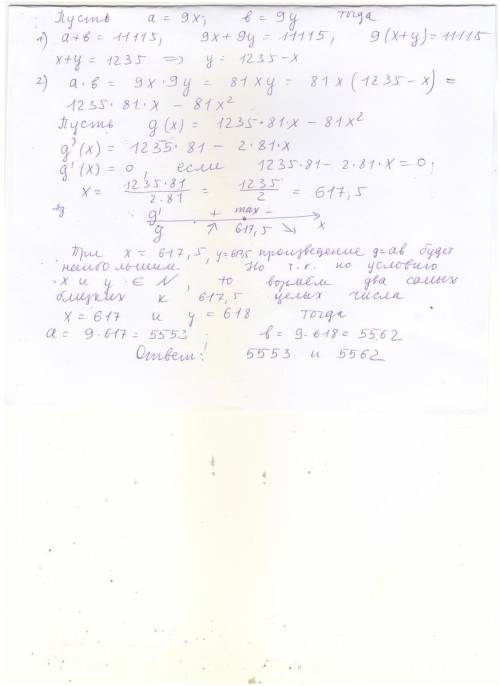 Пусть a = 9x, в = 9y тогда
1) a+в = 11115, 9x + 9y = 11115, 9(x+y) = 11115
x+y = 1235 ⟹ y = 1235-x
2) a·в = 9x·9y = 81xy = 81x(1235-x) =
1235·81·x - 81x²
Пусть g(x) = 1235·81·x - 81x²
g'(x) = 1235·81 - 2·81·x
g'(x) = 0, если 1235·81 - 2·81·x = 0;
x = 1235·81/2·81 = 1235/2 = 617,5
g' + max -
g ↑ 617,5 ↘ x
При x = 617,5, y=617,5 произведение g=aв будет
наибольшим. Но т.к. по условию
x и y ∈ N, то возьмём два самых
близких к 617,5 целых числа
x = 617 и y = 618 тогда
a = 9·617 = 5553 в = 9·618 = 5562
Ответ: 5553 и 5562